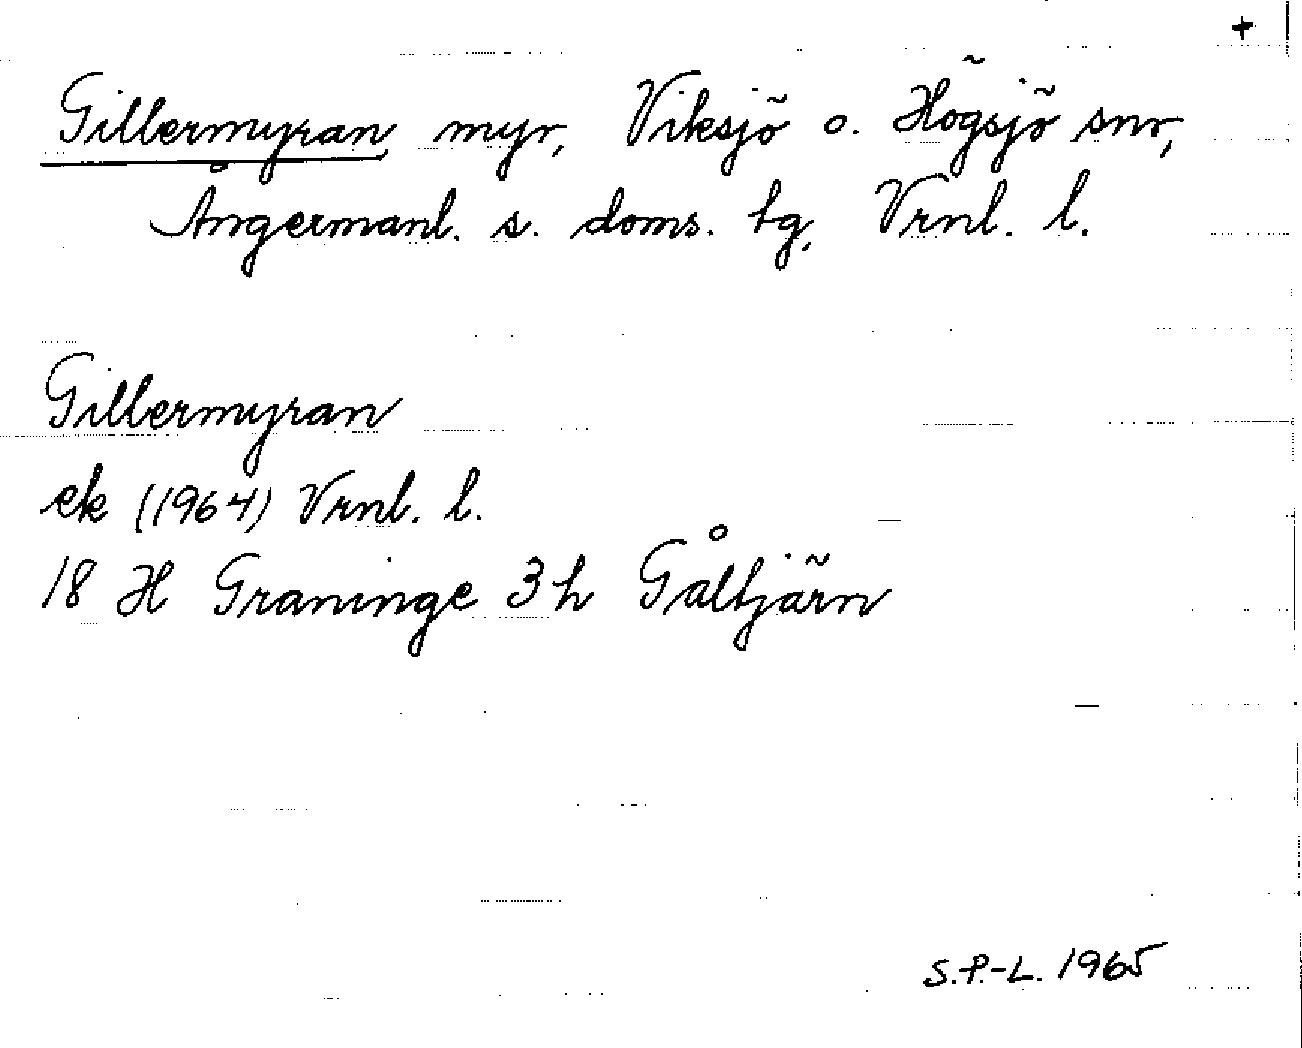 +
Gillermyran myr, Viksjö o. Högsjö snr,
Ångermanl. s. doms. tg, Vrnl. l.
Gillermyran
ek (1964) Vrnl. l.
18 H Graninge 3h Gåltjärn
S.P.-L. 1965